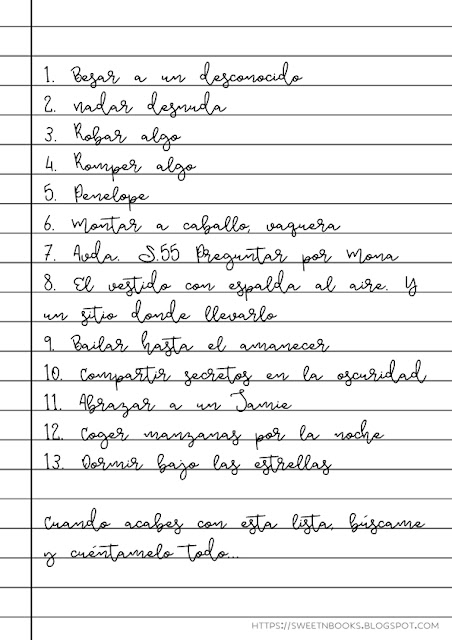 1. Besar a un desconocido
2. Nadar desnuda
3. Robar algo
4. Romper algo
5. Penelope
6. Montar a caballo, vaquera
7. Avda. S.55 Preguntar por Mona
8. El vestido con espalda al aire. Y
un sitio donde llevarlo
9. Bailar hasta el amanecer
10. Compartir secretos en la oscuridad
11. Abrazar a un Jamie
12. Coger manzanas por la noche
13. Dormir bajo las estrellas
Cuando acabes con esta lista, búscame
y cuéntamelo todo...
HTTPS://SWEETNBOOKS.BLOGSPOT.COM